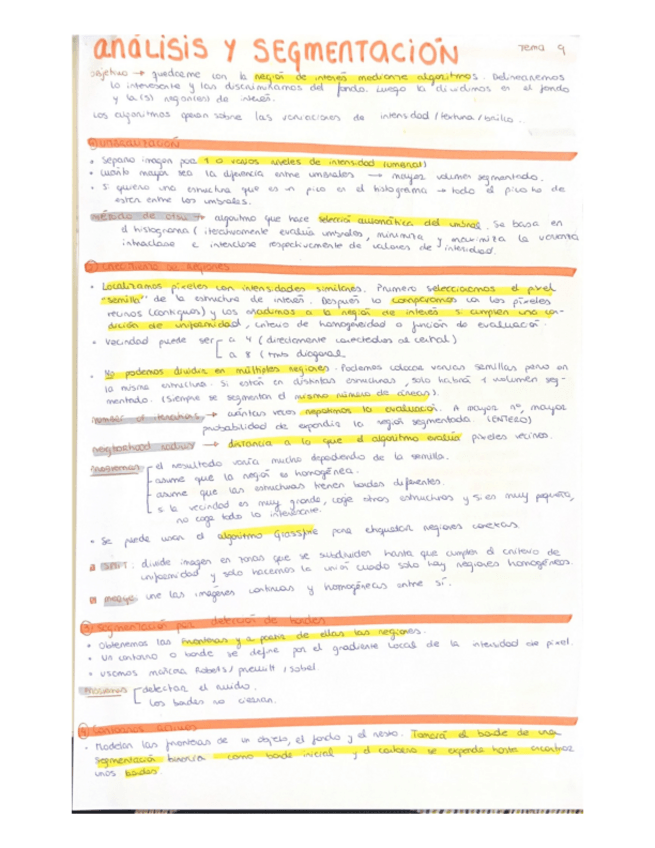 ANÁLISIS Y SEGMENTACIÓN Tema 9
objetivo → quedarme con la región de interés mediante algoritmos. Delinearemos
lo interesante y las discriminamos del fondo. Luego la dividimos en el fondo
y la(s) region(es) de interés.
Los algoritmos operan sobre las variaciones de intensidad / textura / brillo.
① UMBRALIZACIÓN
• Separo imagen por 1 o varios niveles de intensidad (umbral)
• cuanto mayor sea la diferencia entre umbrales → mayor volumen segmentado.
• Si quiero una estructura que es un pico en el histograma → todo el pico ha de
estar entre los umbrales.
método de otsu → algoritmo que hace selección automática del umbral. Se basa en
el histograma (iterativamente evalúa umbrales, minimiza y maximiza la varianza
intraclase e interclase respectivamente de valores de intensidad.
② Crecimiento de Regiones
• Localizamos píxeles con intensidades similares. Primero seleccionamos el píxel
"semilla" de la estructura de interés. Después lo comparamos con los píxeles
vecinos (contiguos) y los añadimos a la región de interés si cumplen una con-
dición de uniformidad, criterio de homogeneidad o función de evaluación.
• Vecindad puede ser a 4 (directamente conectados al central)
a 8 (+ diagonal
• No podemos dividir en múltiples regiones. Podemos colocar varias semillas pero en
la misma estructura. Si están en distintas estructuras, solo habrá 1 volumen seg-
mentado. (Siempre se segmentan el mismo número de áreas).
number of iterations → cuántas veces repetimos la evaluación. A mayor nº, mayor
probabilidad de expandir la región segmentada. (ENTERO)
neighborhood radius → distancia a la que el algoritmo evalúa píxeles vecinos.
PROBLEMAS el resultado varía mucho dependiendo de la semilla.
asume que la región es homogénea.
asume que las estructuras tienen bordes diferentes.
si la vecindad es muy grande, coge otras estructuras y si es muy pequeña,
no coge toda la interesante.
• Se puede usar el algoritmo Grassfire para etiquetar regiones conexas
a SPLIT: divide imagen en zonas que se subdividen hasta que cumplen el criterio de
uniformidad y solo hacemos la unión cuando solo hay regiones homogéneas.
b merge: une las imágenes continuas y homogéneas entre sí.
③ Segmentación por detección de bordes
• Obtenemos las fronteras y a partir de ellas las regiones.
• Un contorno o borde se define por el gradiente local de la intensidad de píxel.
• usamos máscara Roberts / prewitt / sobel.
PROBLEMAS detectar el ruido.
los bordes no cierran.
④ Contornos Activos
• Modelan las fronteras de un objeto, el fondo y el resto. Tomará el borde de una
segmentación binaria como borde inicial y el contorno se expande hasta encontrar
unos bordes.